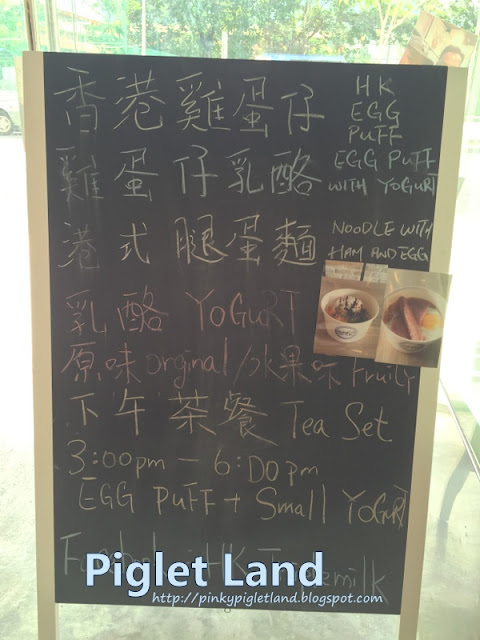 香港雞蛋仔 HK
EGG
PUFF
雞蛋仔乳酪 EGG PUFF
WITH YOGURT
港式腿蛋麵 NOODLE WITH
HAM AND EGG
乳酪 YOGURT
原味 orginal/水果味 Fruity
下午茶餐 Tea Set
3:00pm – 6:00pm
EGG PUFF + Small YOGURT
HK
milk
Piglet Land
http://pinkypigletland.blogspot.com